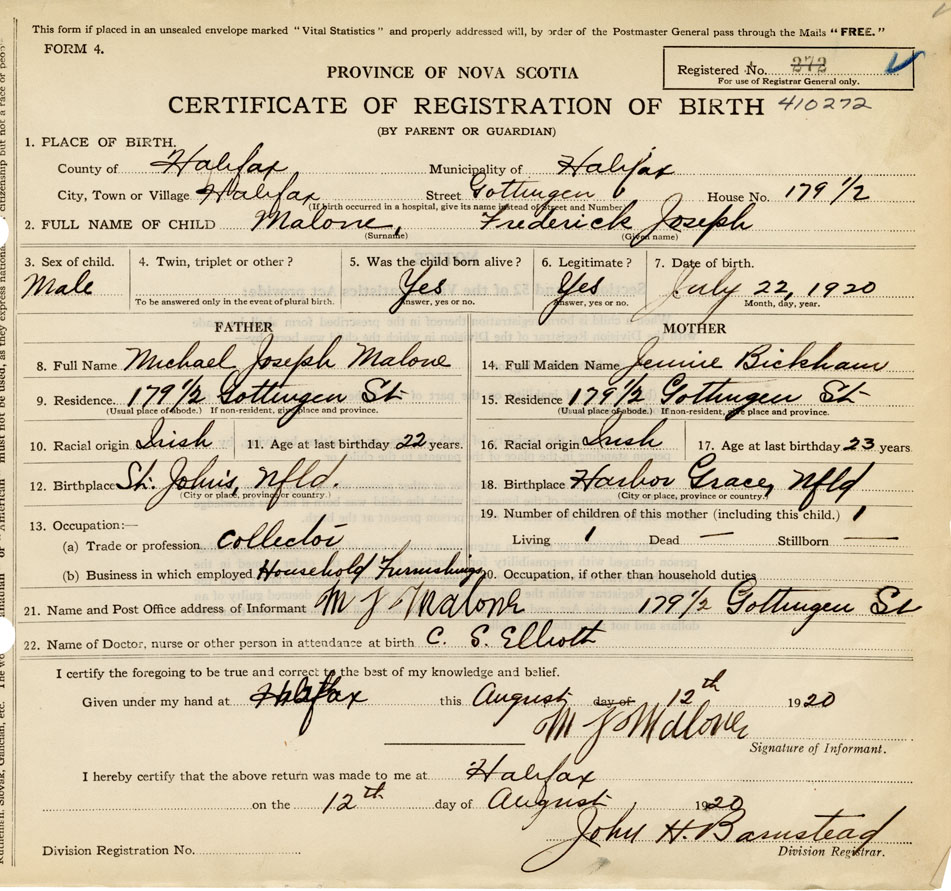 This form if placed in an unsealed envelope marked "Vital Statistics" and properly addressed will, by order of the Postmaster General pass through the Mails "FREE."
FORM 4.
PROVINCE OF NOVA SCOTIA
Registered No. 272
For use of Registrar General only.
CERTIFICATE OF REGISTRATION OF BIRTH 410272
(BY PARENT OR GUARDIAN)
1. PLACE OF BIRTH.
County of Halifax Municipality of Halifax
City, Town or Village Halifax Street Gottingen House No. 179 1/2
(If birth occurred in a hospital, give its name instead of Street and Number)
2. FULL NAME OF CHILD Malone, Frederick Joseph
(Surname) (Given name)
3. Sex of child. 4. Twin, triplet or other? 5. Was the child born alive? 6. Legitimate? 7. Date of birth.
Male Yes Yes July 22, 1920
To be answered only in the event of plural birth. Answer, yes or no. Answer, yes or no. Month, day, year.
FATHER MOTHER
8. Full Name Michael Joseph Malone 14. Full Maiden Name Jennie Bickham
9. Residence. 179 1/2 Gottingen St 15. Residence 179 1/2 Gottingen St
(Usual place of abode.) If non-resident, give place and province. (Usual place of abode.) If non-resident, give place and province.
10. Racial origin Irish 11. Age at last birthday 22 years. 16. Racial origin Irish 17. Age at last birthday 23 years
12. Birthplace St. John's, Nfld. 18. Birthplace Harbor Grace, Nfld
(City or place, province or country.) (City or place, province or country.)
13. Occupation:— 19. Number of children of this mother (including this child.) 1
(a) Trade or profession collector Living 1 Dead — Stillborn —
(b) Business in which employed Household Furnishings 20. Occupation, if other than household duties
21. Name and Post Office address of Informant M J Malone 179 1/2 Gottingen St
22. Name of Doctor, nurse or other person in attendance at birth C. S. Elliott
I certify the foregoing to be true and correct to the best of my knowledge and belief.
Given under my hand at Halifax this August day of 12th 1920
M J Malone
Signature of Informant.
I hereby certify that the above return was made to me at Halifax
on the 12th day of August, 1920
John H. Barnstead
Division Registration No. Division Registrar.